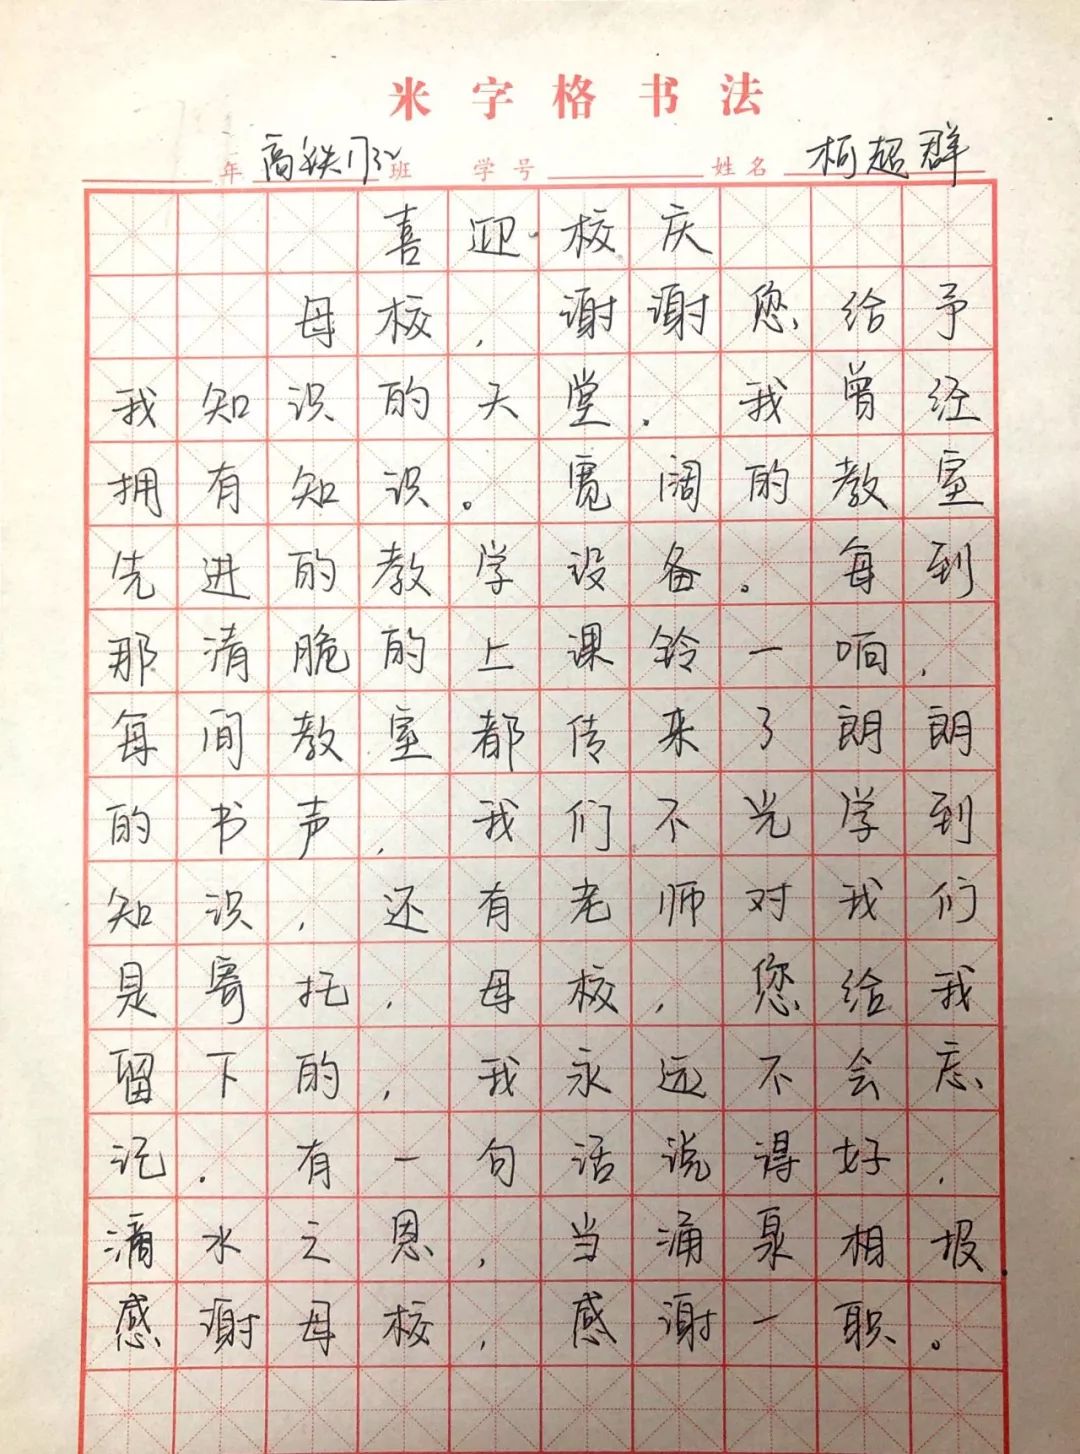 米字格书法
年 高铁1732班 学号 姓名 柯超群
喜迎校庆
母校，谢谢您给予
我知识的天堂．我曾经
拥有知识。宽阔的教室
先进的教学设备。每到
那清脆的上课铃一响，
每间教室都传来了朗朗
的书声，我们不光学到
知识，还有老师对我们
是寄托，母校，您给我
留下的，我永远不会忘
记．有一句话说得好，
滴水之恩，当涌泉相报
感谢母校，感谢一职。